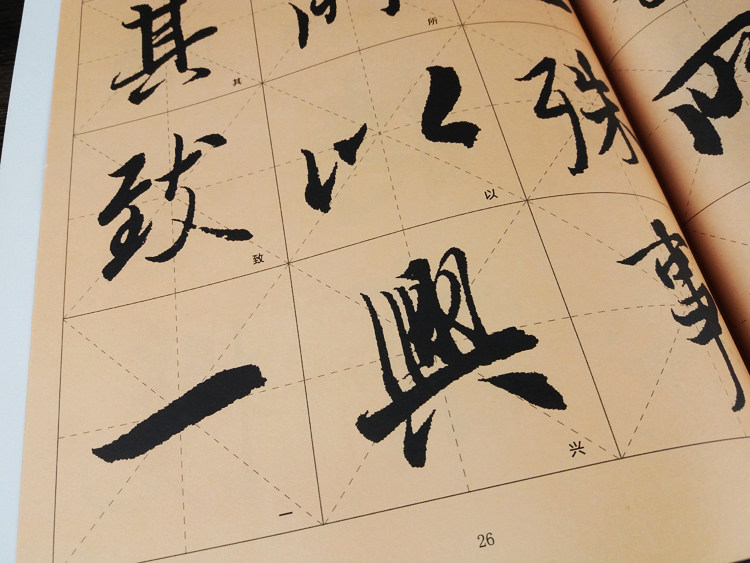 殊事
所以興
所以兴
其致一
其致一
26